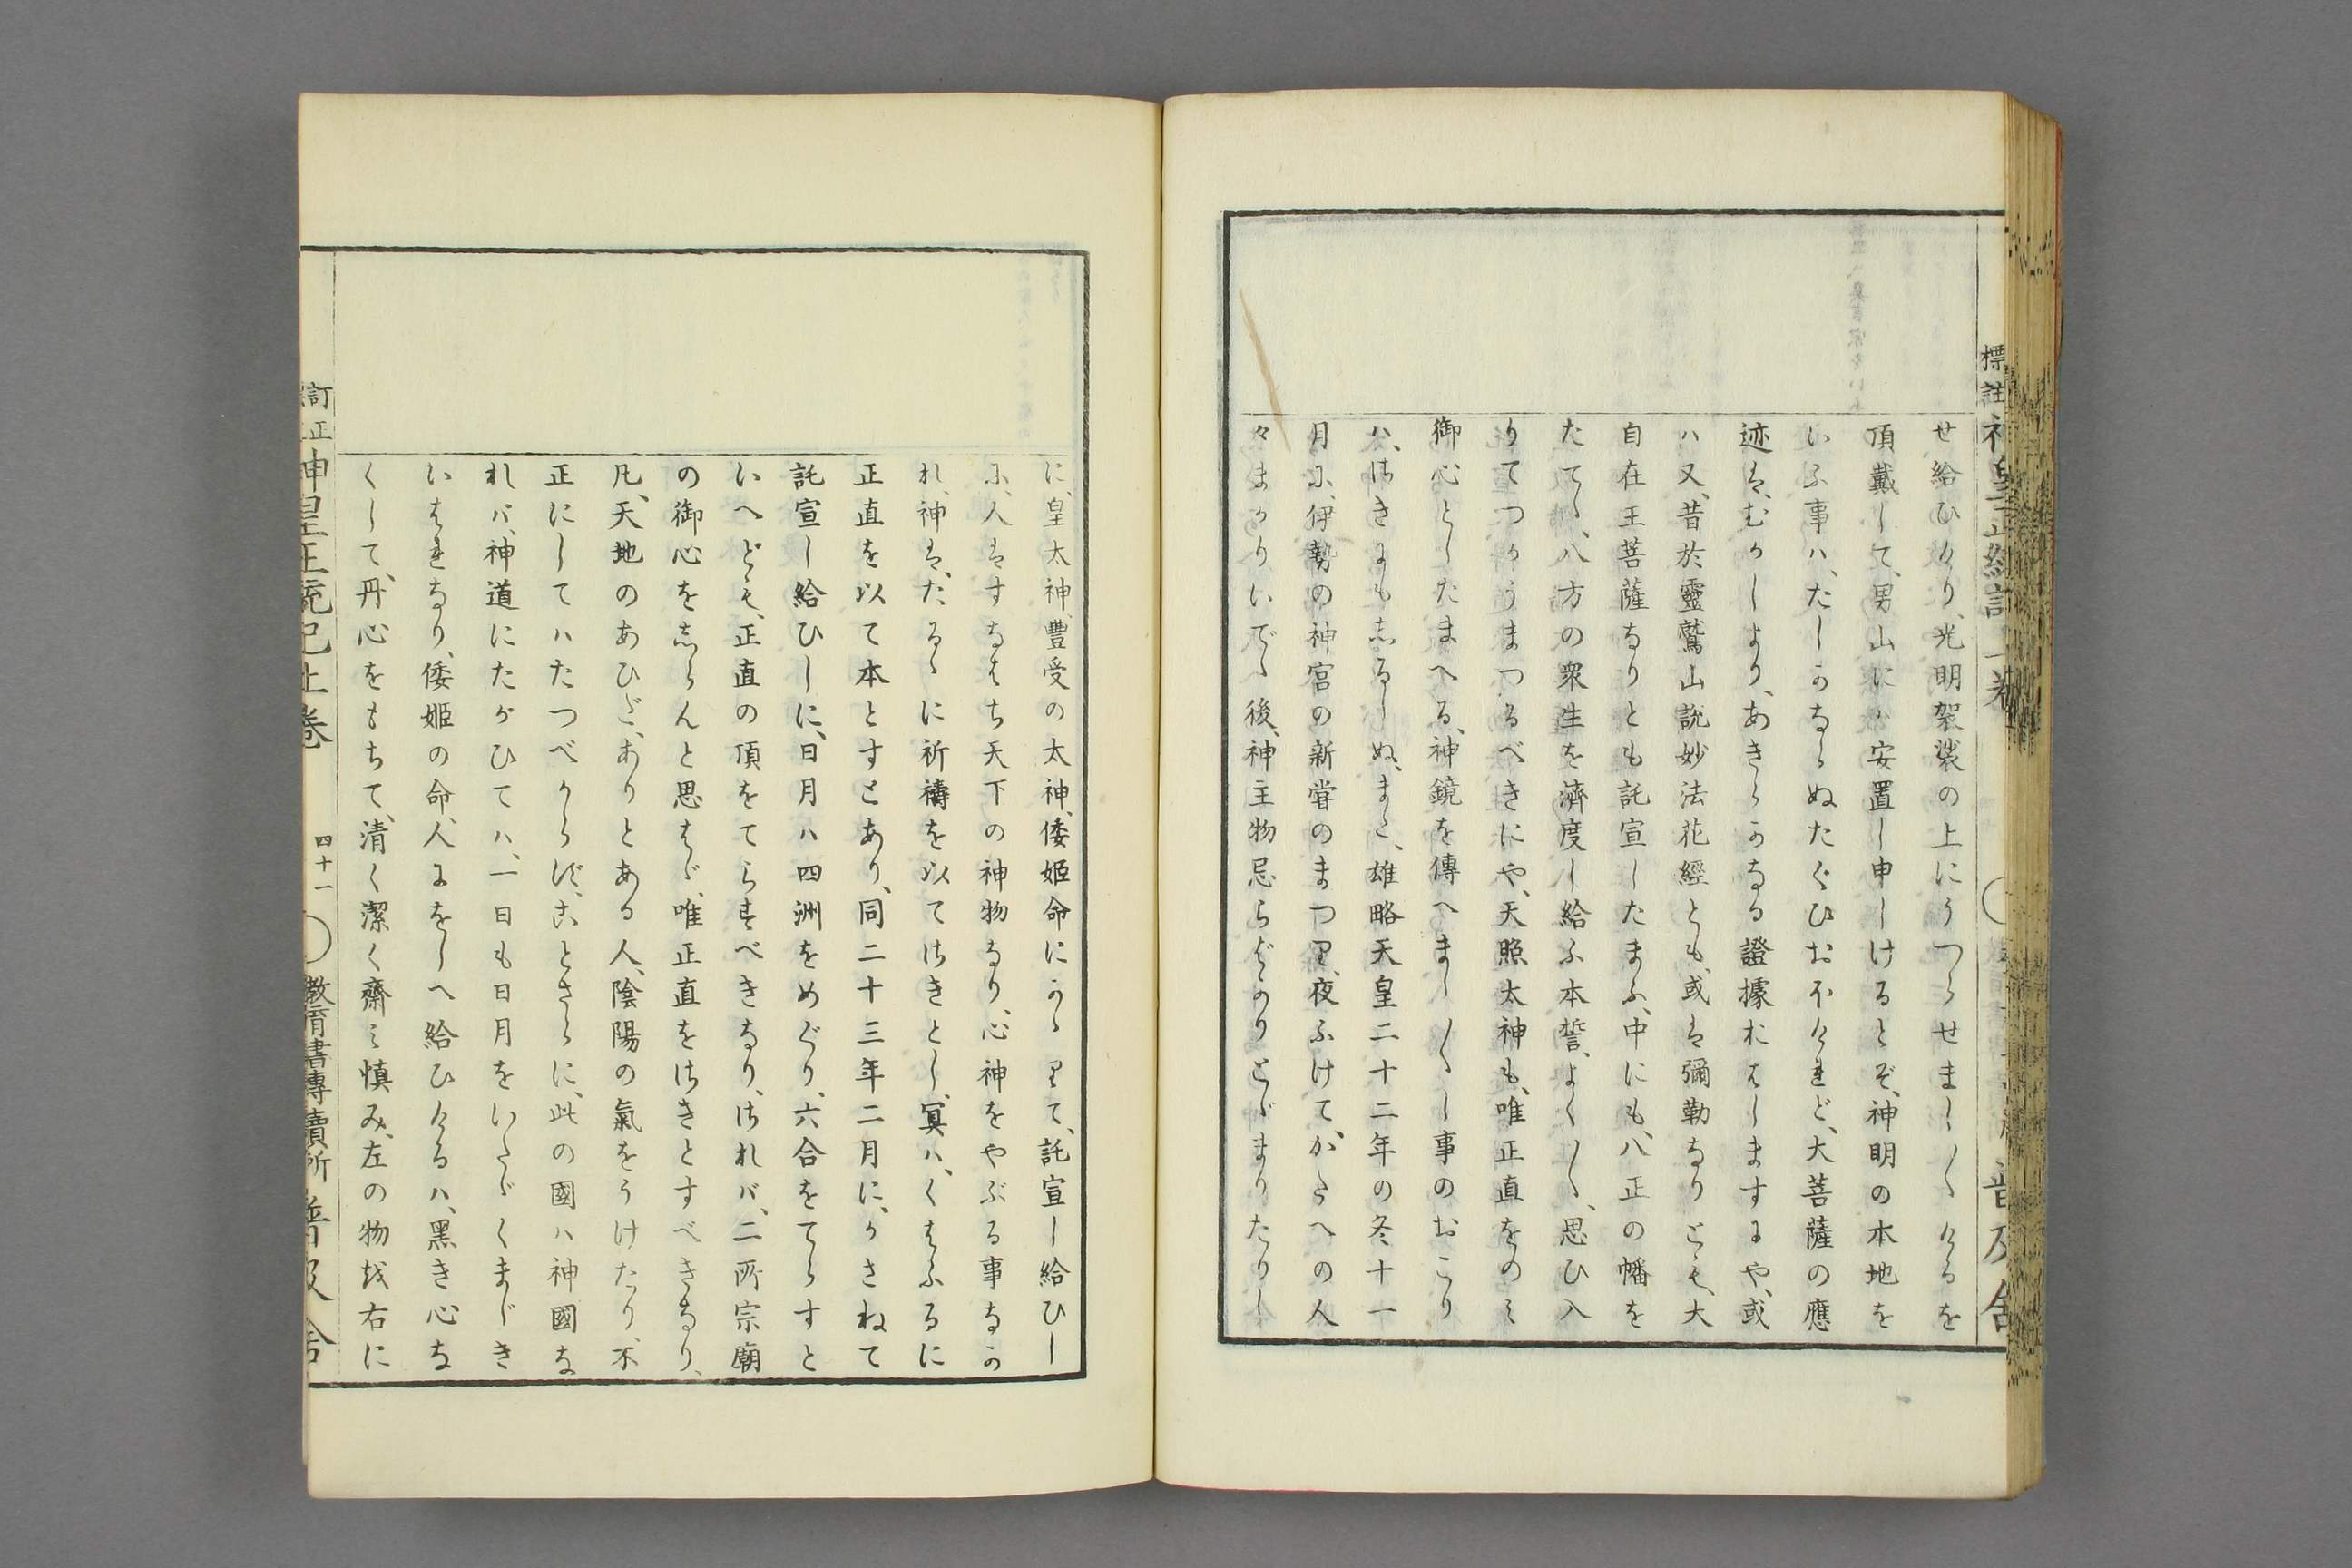 せ給ひけり、光明袈裟の上にうつらせまし〱けるを
頂戴して、男山にハ安置し申しけるとぞ、神明の本地を
いふ事ハ、たしかならぬたぐひおほけれど、大菩薩の應
迹は、むかしより、あきらかなる證據おはしますにや、或
ハ又、昔於靈鷲山說妙法花經とも、或は彌勒なりとも、大
自在王菩薩なりとも託宣したまふ、中にも、八正の幡を
たてゝ、八方の衆生を濟度し給ふ本誓、よく〱、思ひ入
りてつかうまつるべきにや、天照太神も、唯正直をのミ
御心としたまへる、神鏡を傳へまし〱し事のおこり
ハ、さきにも志るしぬ、また、雄略天皇二十二年の冬十一
月に、伊勢の神宮の新甞のまつり、夜ふけて、かたへの人
々まかりいでゝ後、神主物忌らばかりとゞまりたりし
に、皇太神、豐受の太神、倭姬命にかゝりて、託宣し給ひし
に、人はすなはち天下の神物なり、心神をやぶる事なか
れ、神は、たるゝに祈禱を以てさきとし、冥ハ、くはふるに
正直を以て本とすとあり、同二十三年二月に、かさねて
託宣し給ひしに、日月ハ四洲をめぐり、六合をてらすと
いへども、正直の頂をてらすべきなり、されバ、二所宗廟
の御心を志らんと思はゞ、唯正直をさきとすべきなり、
凡、天地のあひだ、ありとある人、陰陽の氣をうけたり、不
正にしてハたつべからず、ことさらに、此の國ハ神國な
れバ、神道にたがひてハ、一日も日月をいたゞくまじき
いはれなり、倭姬の命、人にをしへ給ひけるハ、黑き心な
くして、丹心をもちて、清く潔く齋ミ慎み、左の物を右に
訂正 神皇正統記上卷 四十一 教育書專賣所 普及舍